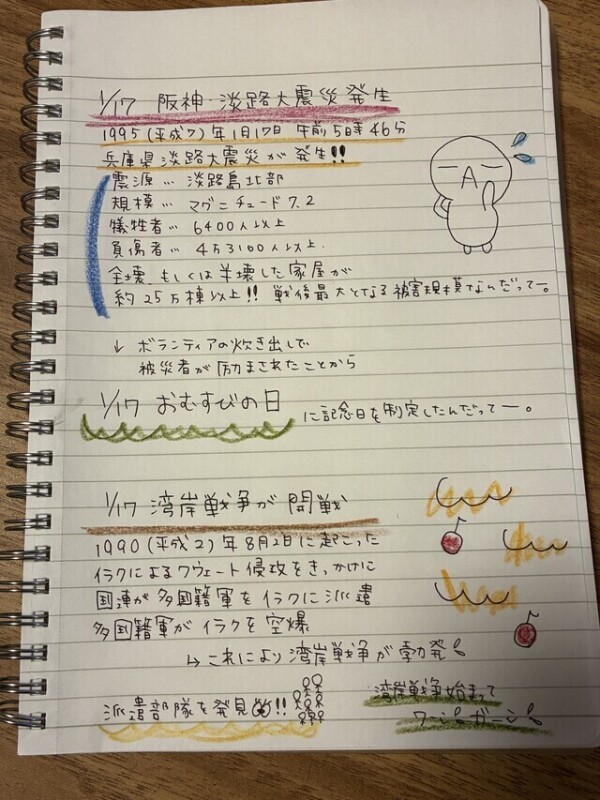 1/17 阪神・淡路大震災発生
1995(平成7)年1月17日 午前5時46分
兵庫県淡路大震災が発生!!
震源… 淡路島北部
規模… マグニチュード7.2
犠牲者… 6400人以上
負傷者… 4万3100人以上.
全壊、もしくは半壊した家屋が
約25万棟以上!! 戦後最大となる被害規模なんだってー。
↓ ボランティアの炊き出しで
被災者が励まされたことから
1/17 おむすびの日 に記念日を制定したんだってー。
1/17 湾岸戦争が開戦
1990(平成2)年8月2日に起こった
イラクによるクウェート侵攻をきっかけに
国連が多国籍軍をイラクに派遣
多国籍軍がイラクを空爆
↳ これにより湾岸戦争が勃発!
派遣部隊を発見!!
湾岸戦争始まって
ワーン!ガーン!